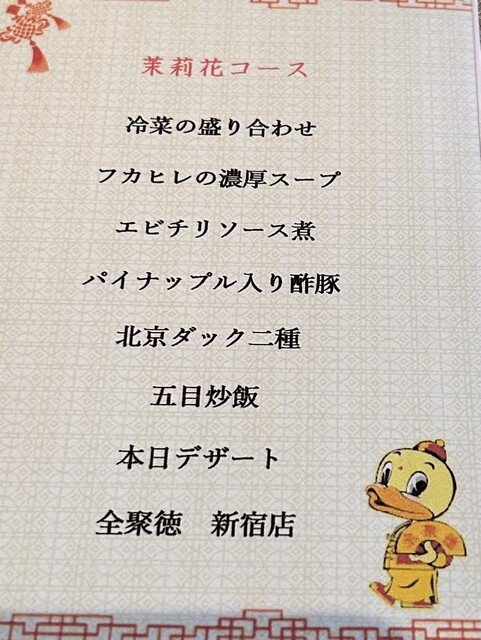 茉莉花コース
冷菜の盛り合わせ
フカヒレの濃厚スープ
エビチリソース煮
パイナップル入り酢豚
北京ダック二種
五目炒飯
本日デザート
全聚徳　新宿店
全聚德